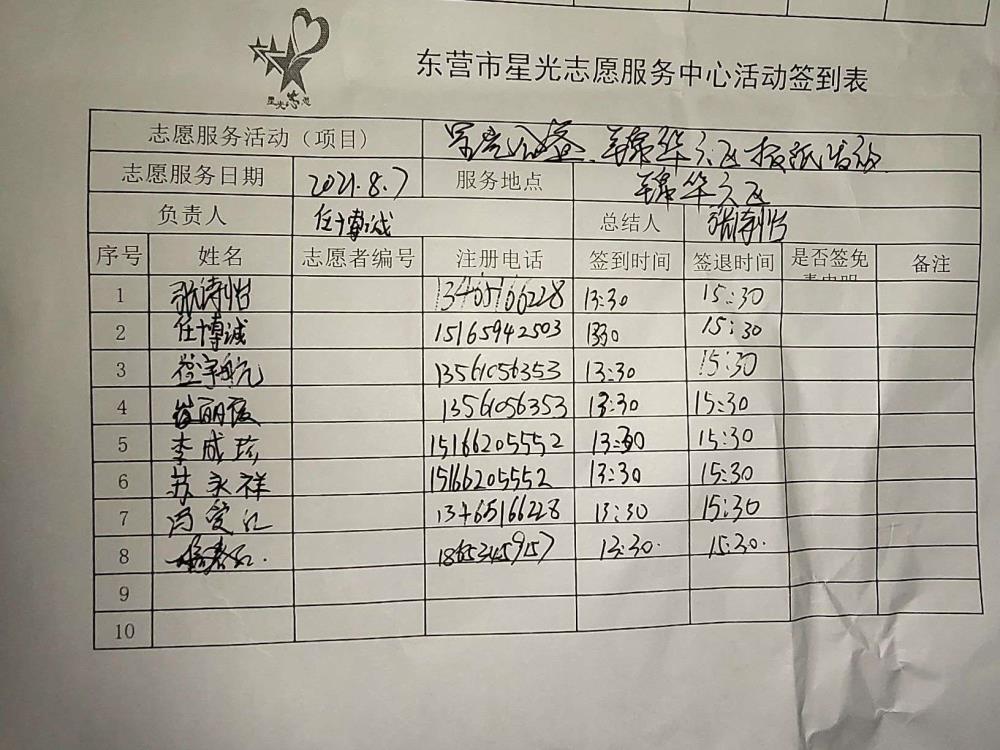 星光志愿
东营市星光志愿服务中心活动签到表
志愿服务活动（项目） 锦华六区报纸活动
志愿服务日期 2021.8.7 服务地点 锦华六区
负责人 任博诚 总结人 张涛怡
序号 姓名 志愿者编号 注册电话 签到时间 签退时间 是否签免 备注
1 张涛怡 13405166228 13:30 15:30
2 任博诚 15165942503 1330 15:30
3 宇航 13561056353 13:30 15:30
4 崔丽霞 13561056353 13:30 15:30
5 李成珍 15166205552 13:30 15:30
6 苏永祥 15166205552 13:30 15:30
7 冯爱红 13465166228 13:30 15:30
8 13:30. 15:30.
9
10